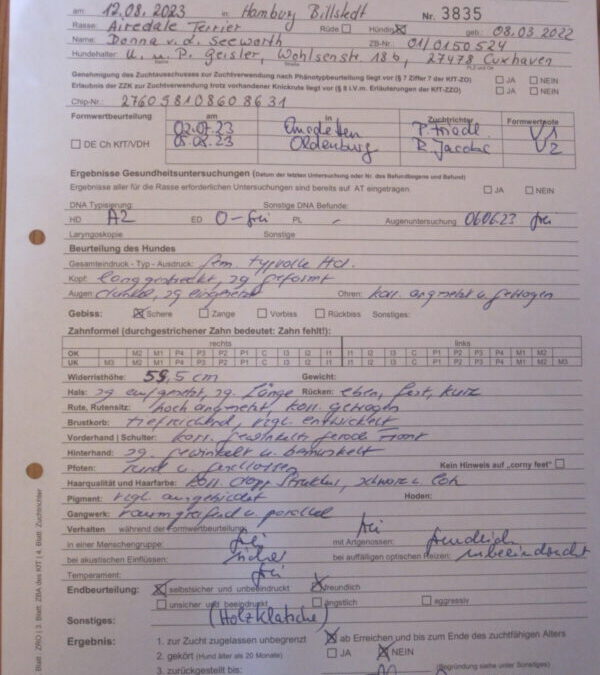 am: 12.08.2023 in Hamburg Billstedt Nr. 3835
Rasse: Airedale Terrier Rüde Hündin geb.: 08.03.2022
Name: Donna v. d. Seewarth ZB-Nr.: 01/0150524
Hundehalter: U. u. P. Geisler, Wohlsenstr. 18b, 27478 Cuxhaven
Genehmigung des Zuchtausschusses zur Zuchtverwendung nach Phänotypbeurteilung liegt vor (§ 7 Ziffer 7 der KfT-ZO) JA NEIN
Erlaubnis der ZZK zur Zuchtverwendung trotz vorhandener Knickrute liegt vor (§ 8 i.V.m. Erläuterungen der KfT-ZZO) JA NEIN
Chip-Nr.: 276058108608631
Formwertbeurteilung am in Zuchtrichter Formwertnote
02.07.23 Emsdetten P. Friedl V1
DE Ch KfT/VDH 05.08.23 Oldenburg R. Jacobs V2
Ergebnisse Gesundheitsuntersuchungen (Datum der letzten Untersuchung oder Nr. des Befundbogens und Befund)
Ergebnisse aller für die Rasse erforderlichen Untersuchungen sind bereits auf AT eingetragen JA NEIN
DNA Typisierung: Sonstige DNA Befunde:
HD A2 ED 0-frei PL - Augenuntersuchung 060623 frei
Laryngoskopie Sonstige
Beurteilung des Hundes
Gesamteindruck - Typ - Ausdruck: fem. typvolle Hd.
Kopf: langgestreckt, sg geformt
Augen dunkel, sg eingesetzt Ohren: korr. angesetzt u. getragen
Gebiss: Schere Zange Vorbiss Rückbiss Sonstiges:
Zahnformel (durchgestrichener Zahn bedeutet: Zahn fehlt!):
rechts links
OK M2 M1 P4 P3 P2 P1 C I3 I2 I1 I1 I2 I3 C P1 P2 P3 P4 M1 M2
UK M3 M2 M1 P4 P3 P2 P1 C I3 I2 I1 I1 I2 I3 C P1 P2 P3 P4 M1 M2 M3
Widerristhöhe: 59,5 cm Gewicht:
Hals: sg aufgesetzt, sg. Länge Rücken: eben, fest, kurz
Rute, Rutensitz: hoch angesetzt, korr. getragen
Brustkorb: tiefreichend, vzgl. entwickelt
Vorderhand | Schulter: korr. gewinkelt, gerade Front
Hinterhand: sg. gewinkelt u. bemuskelt
Pfoten: rund u. geschlossen Kein Hinweis auf „corny feet"
Haarqualität und Haarfarbe: korr. Struktur, schwarz u. loh
Pigment: vzgl. ausgebildet Hoden:
Gangwerk: raumgreifend u. parallel
Verhalten während der Formwertbeurteilung: frei
in einer Menschengruppe: frei mit Artgenossen: freundlich
bei akustischen Einflüssen: sicher bei auffälligen optischen Reizen: unbeeindruckt
Temperament: frei
Endbeurteilung: selbstsicher und unbeeindruckt freundlich
unsicher und beeindruckt ängstlich aggressiv
Sonstiges: (Holzklatsche)
Ergebnis: 1. zur Zucht zugelassen unbegrenzt ab Erreichen und bis zum Ende des zuchtfähigen Alters
2. gekört (Hund älter als 20 Monate) JA NEIN
3. zurückgestellt bis: (Begründung siehe unter Sonstiges)
Blatt ZRO | 3. Blatt ZBA des KfT | 4. Blatt Zuchtrichter